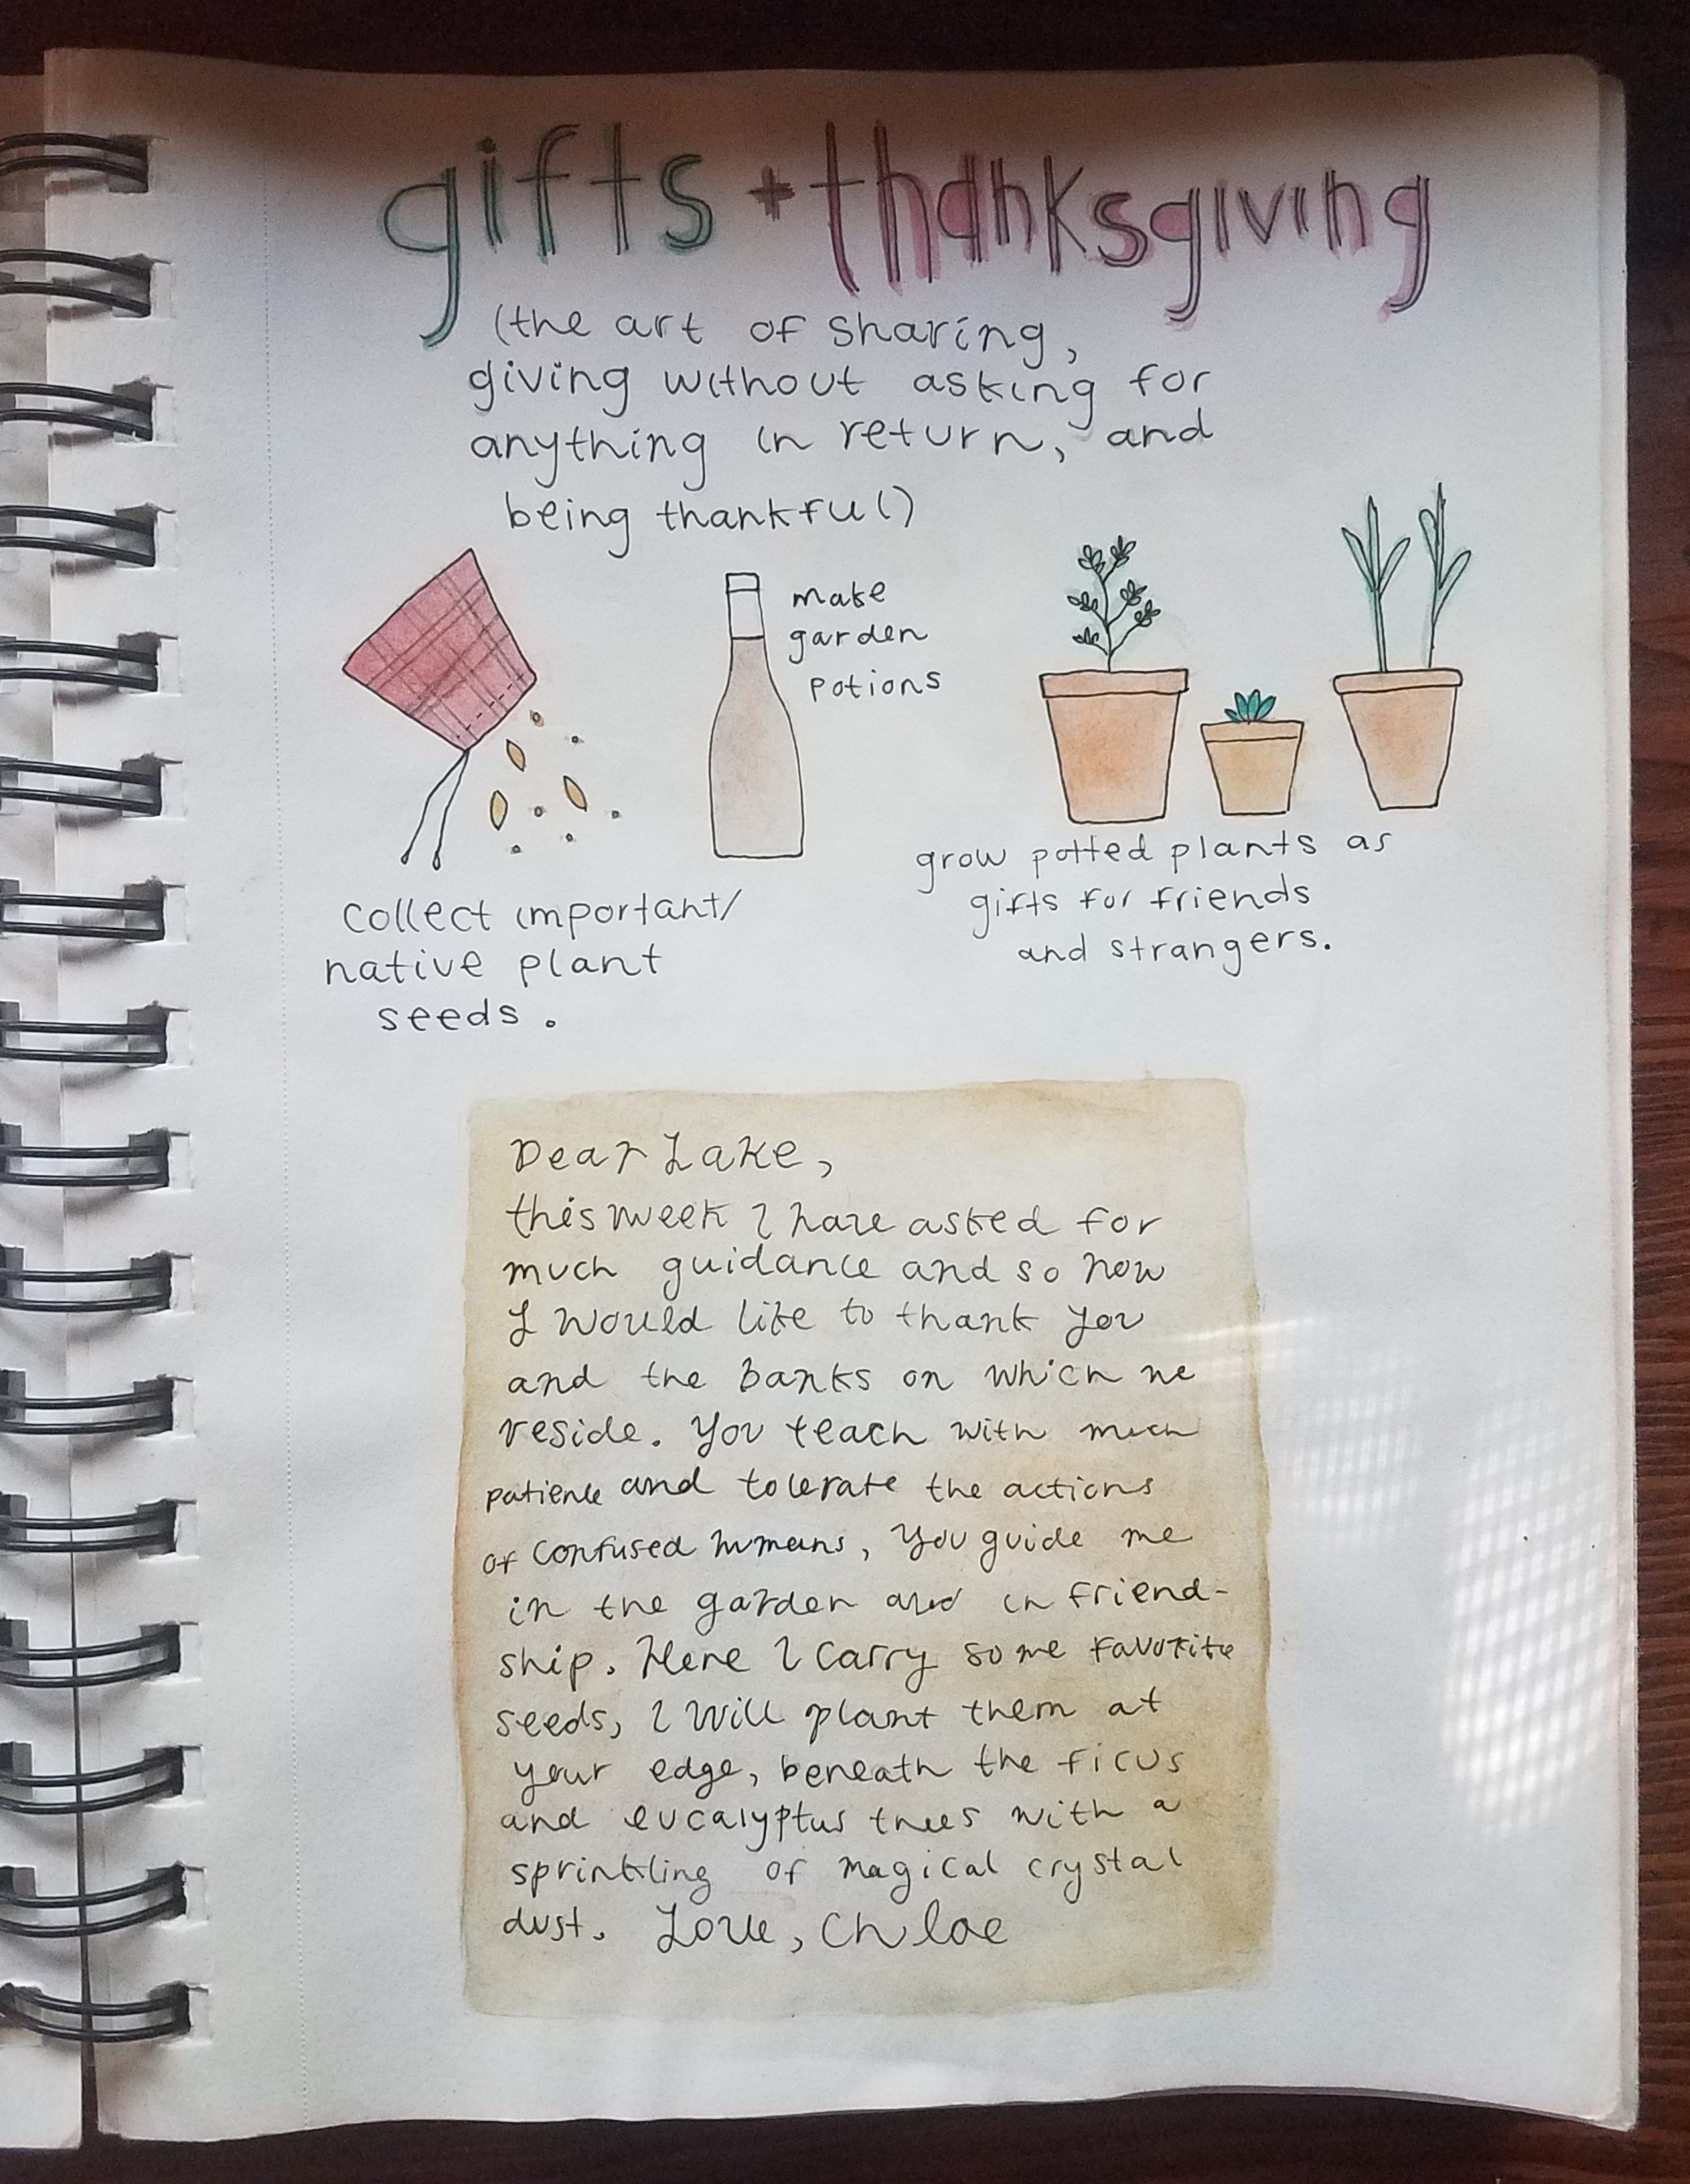 gifts + thanksgiving
(the art of sharing,
giving without asking for
anything in return, and
being thankful)
make
garden
potions
collect important/
native plant
seeds.
grow potted plants as
gifts for friends
and strangers.
Dear Lake,
this week I have asked for
much guidance and so now
I would like to thank you
and the banks on which we
reside. You teach with much
patience and tolerate the actions
of confused humans, you guide me
in the garden and in friend-
ship. Here I carry some favorite
seeds, I will plant them at
your edge, beneath the ficus
and eucalyptus trees with a
sprinkling of magical crystal
dust. Love, Chloe